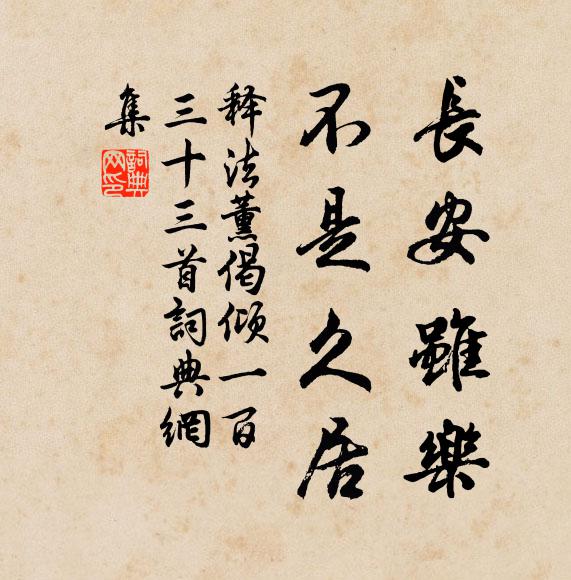 長安雖樂
不是久居
释法薰偈傾一百
三十三首詞典網
集
詞典
网印